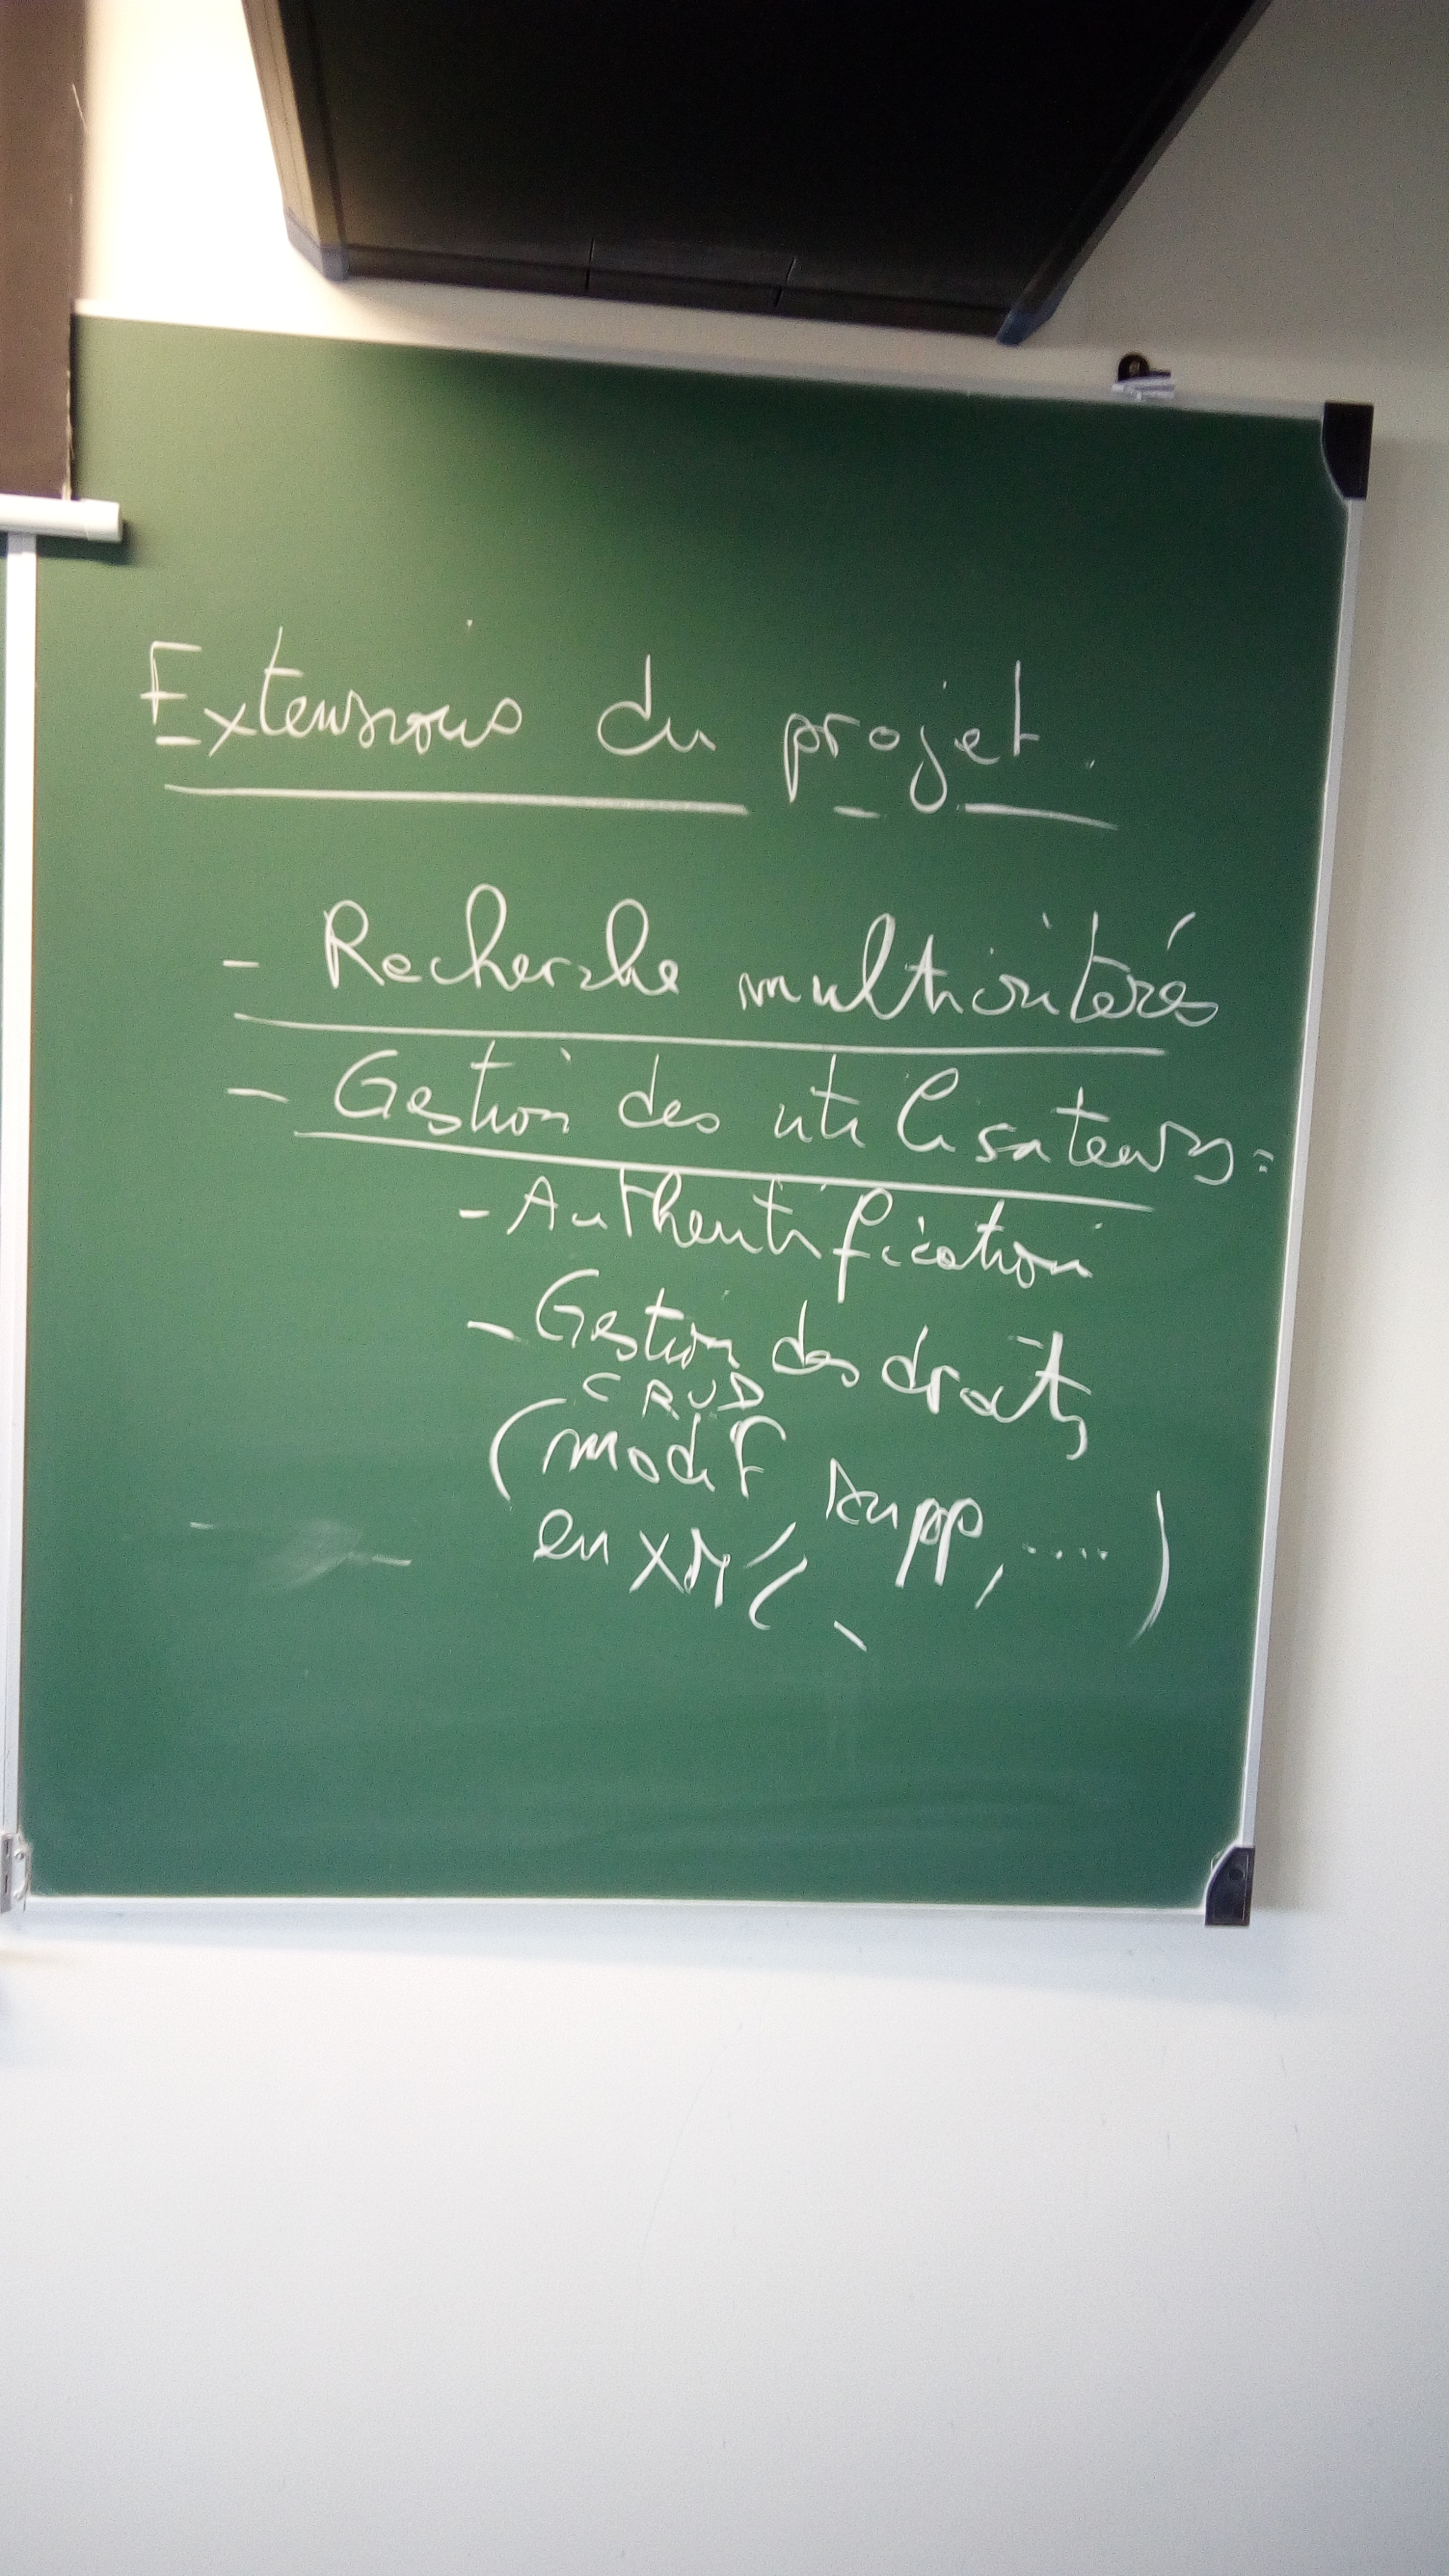 Extensions du projet.
- Recherche multicritères
- Gestion des utilisateurs :
- Authentification
- Gestion des droits
CRUD
(modif supp, ....)
en XML